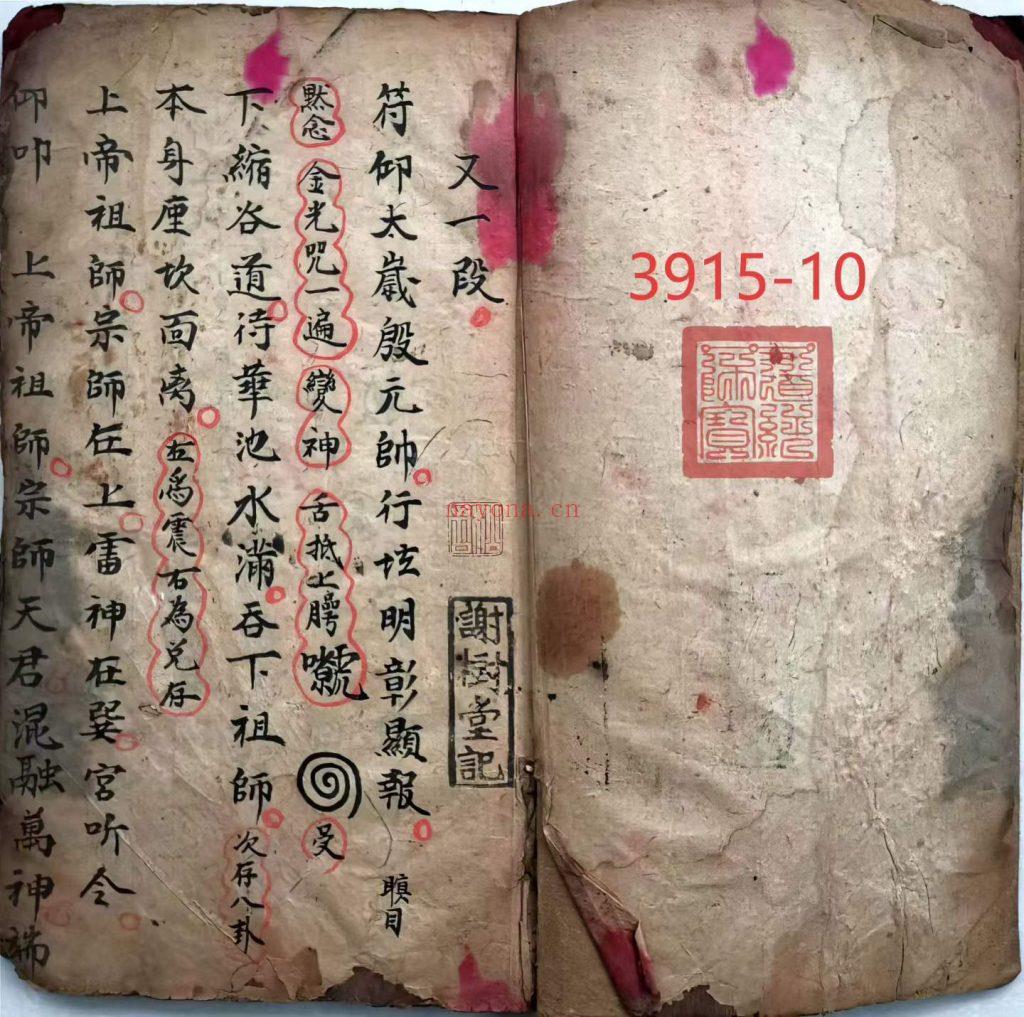 3915-10
道經師寶
又一段
謝樹堂記
符仰太歲殷元帥行坛明彰顯報 瞋目
默念 金光咒一遍 變神 舌抵上腭 受
下縮谷道待華池水滿吞下祖師 次存八卦
本身座坎面离 左為震右為兌存
上帝祖師宗師在上雷神在巽宮听令
仰叩 上帝祖師宗師天君混融萬神端
nayona.cn